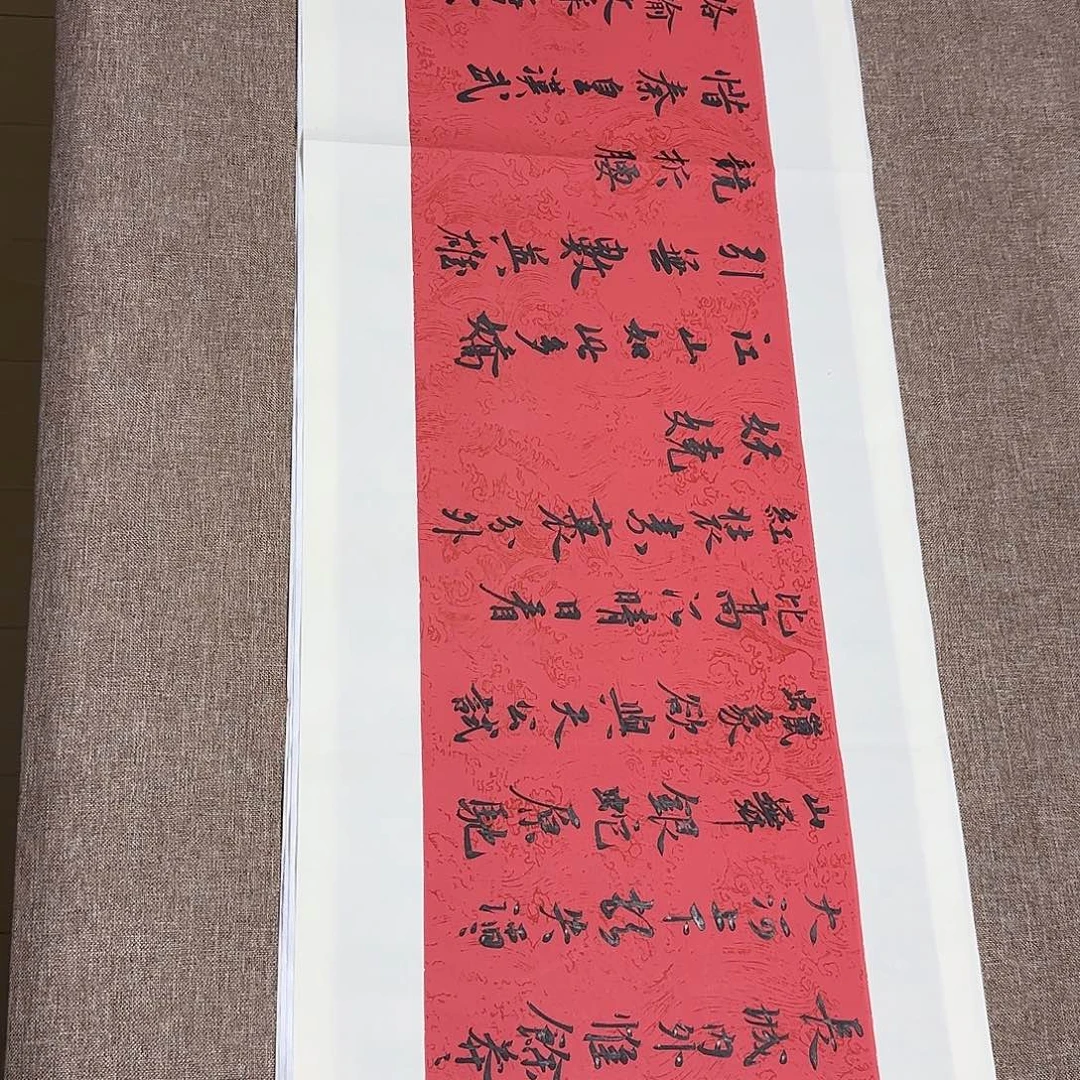 長城内外惟餘莽
大河上下頓失滔
山舞銀蛇原馳
蠟象欲與天公試
比高須晴日看
紅裝素裹分外
妖嬈
江山如此多嬌
引無數英雄
競折腰
惜秦皇漢武